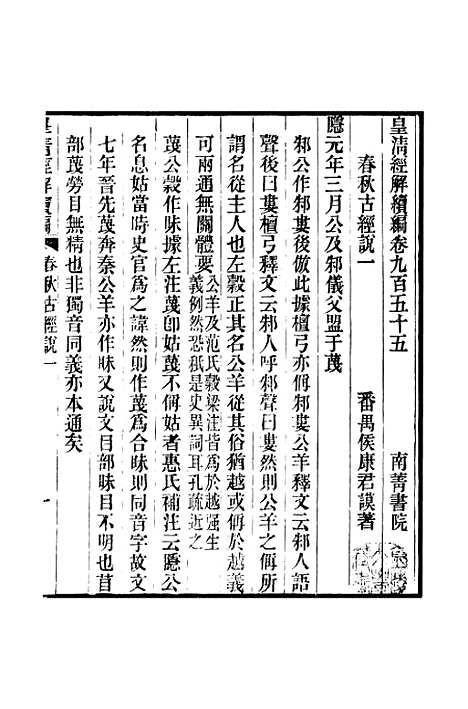 皇淸經解續編卷九百五十五
南菁書院
春秋古經說一
番禺侯康君謨著
隱元年三月公及邾儀父盟于蔑
邾公作邾婁後倣此據檀弓亦偁邾婁公羊釋文云邾人語
聲後曰婁檀弓釋文云邾人呼邾聲曰婁然則公羊之偁所
謂名從主人也公穀正其名公羊從其俗猶越或偁於越義
可兩通無關體要公羊及范氏穀梁注皆爲於越强生
義例然恐祇是史異詞耳孔疏近之
蔑公穀作昧據左注蔑卽姑蔑不偁姑者惠氏補注云隱公
名息姑當時史官爲之諱然則作蔑爲合昧則同音字故文
七年晉先蔑奔秦公羊亦作昧又說文目部昧目不明也苜
部蔑勞目無精也非獨音同義亦本通矣
皇淸經解續編
春秋古經說一
一